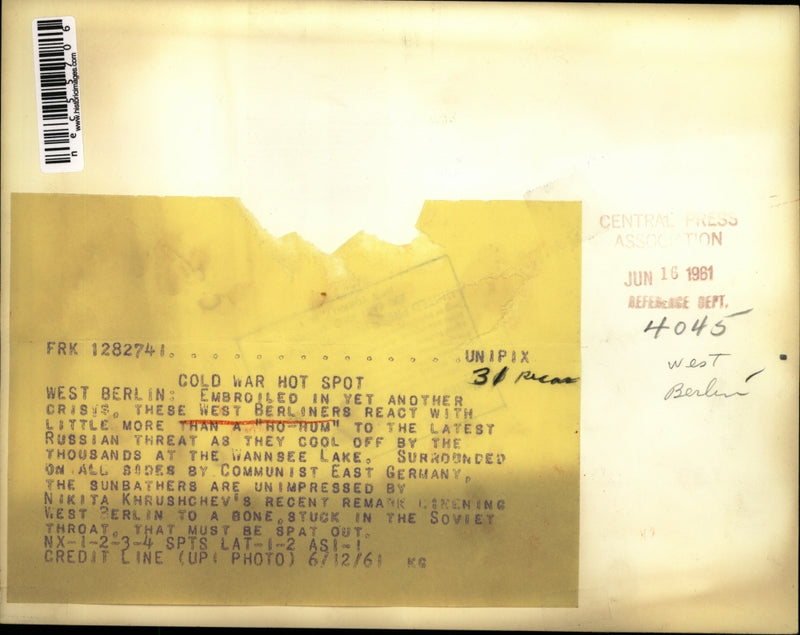 www.historicimages.com
nec55706
CENTRAL PRESS
ASSOCIATION
JUN 16 1961
REFERENCE DEPT.
4045
West
Berlin
FRK 1282741. . . . . . . . . . . . . . . .UNIPIX
31
COLD WAR HOT SPOT
WEST BERLIN: EMBROILED IN YET ANOTHER
CRISIS, THESE WEST BERLINERS REACT WITH
LITTLE MORE THAN A "HO-HUM" TO THE LATEST
RUSSIAN THREAT AS THEY COOL OFF BY THE
THOUSANDS AT THE WANNSEE LAKE. SURROUNDED
ON ALL SIDES BY COMMUNIST EAST GERMANY,
THE SUNBATHERS ARE UNIMPRESSED BY
NIKITA KHRUSHCHEV'S RECENT REMARK LIKENING
WEST BERLIN TO A BONE, STUCK IN THE SOVIET
THROAT, THAT MUST BE SPAT OUT.
NX-1-2-3-4 SPTS LAT-1-2 ASI-1
CREDIT LINE (UPI PHOTO) 6/12/61 KG